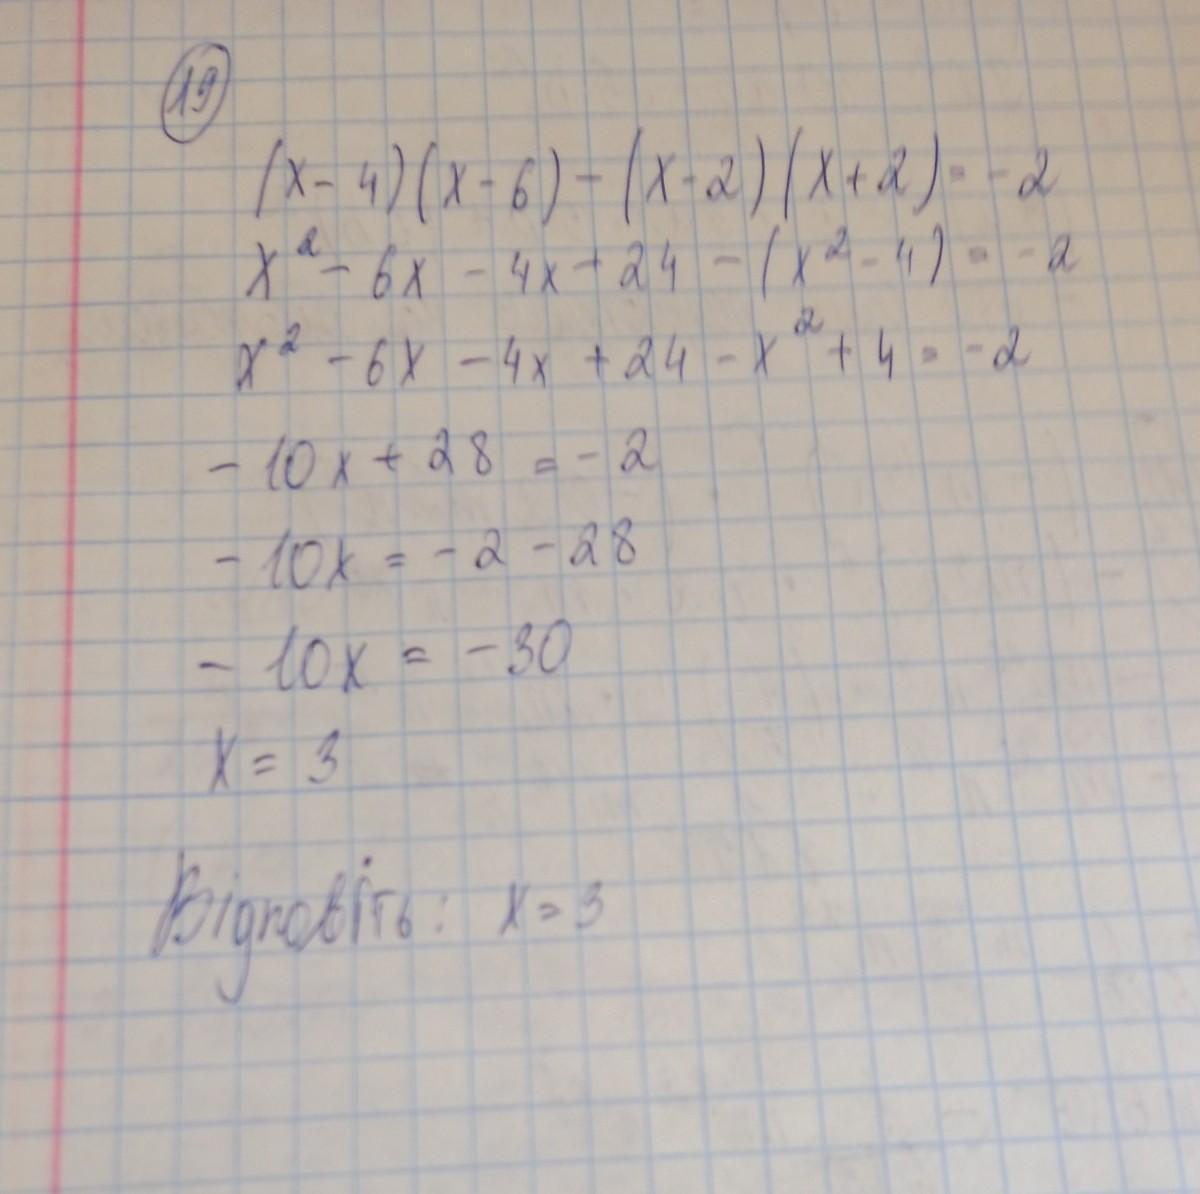 19
(x-4)(x-6)-(x-2)(x+2)=-2
x²-6x-4x+24-(x²-4)=-2
x²-6x-4x+24-x²+4=-2
-10x+28=-2
-10x=-2-28
-10x=-30
x=3
Відповіть: x=3